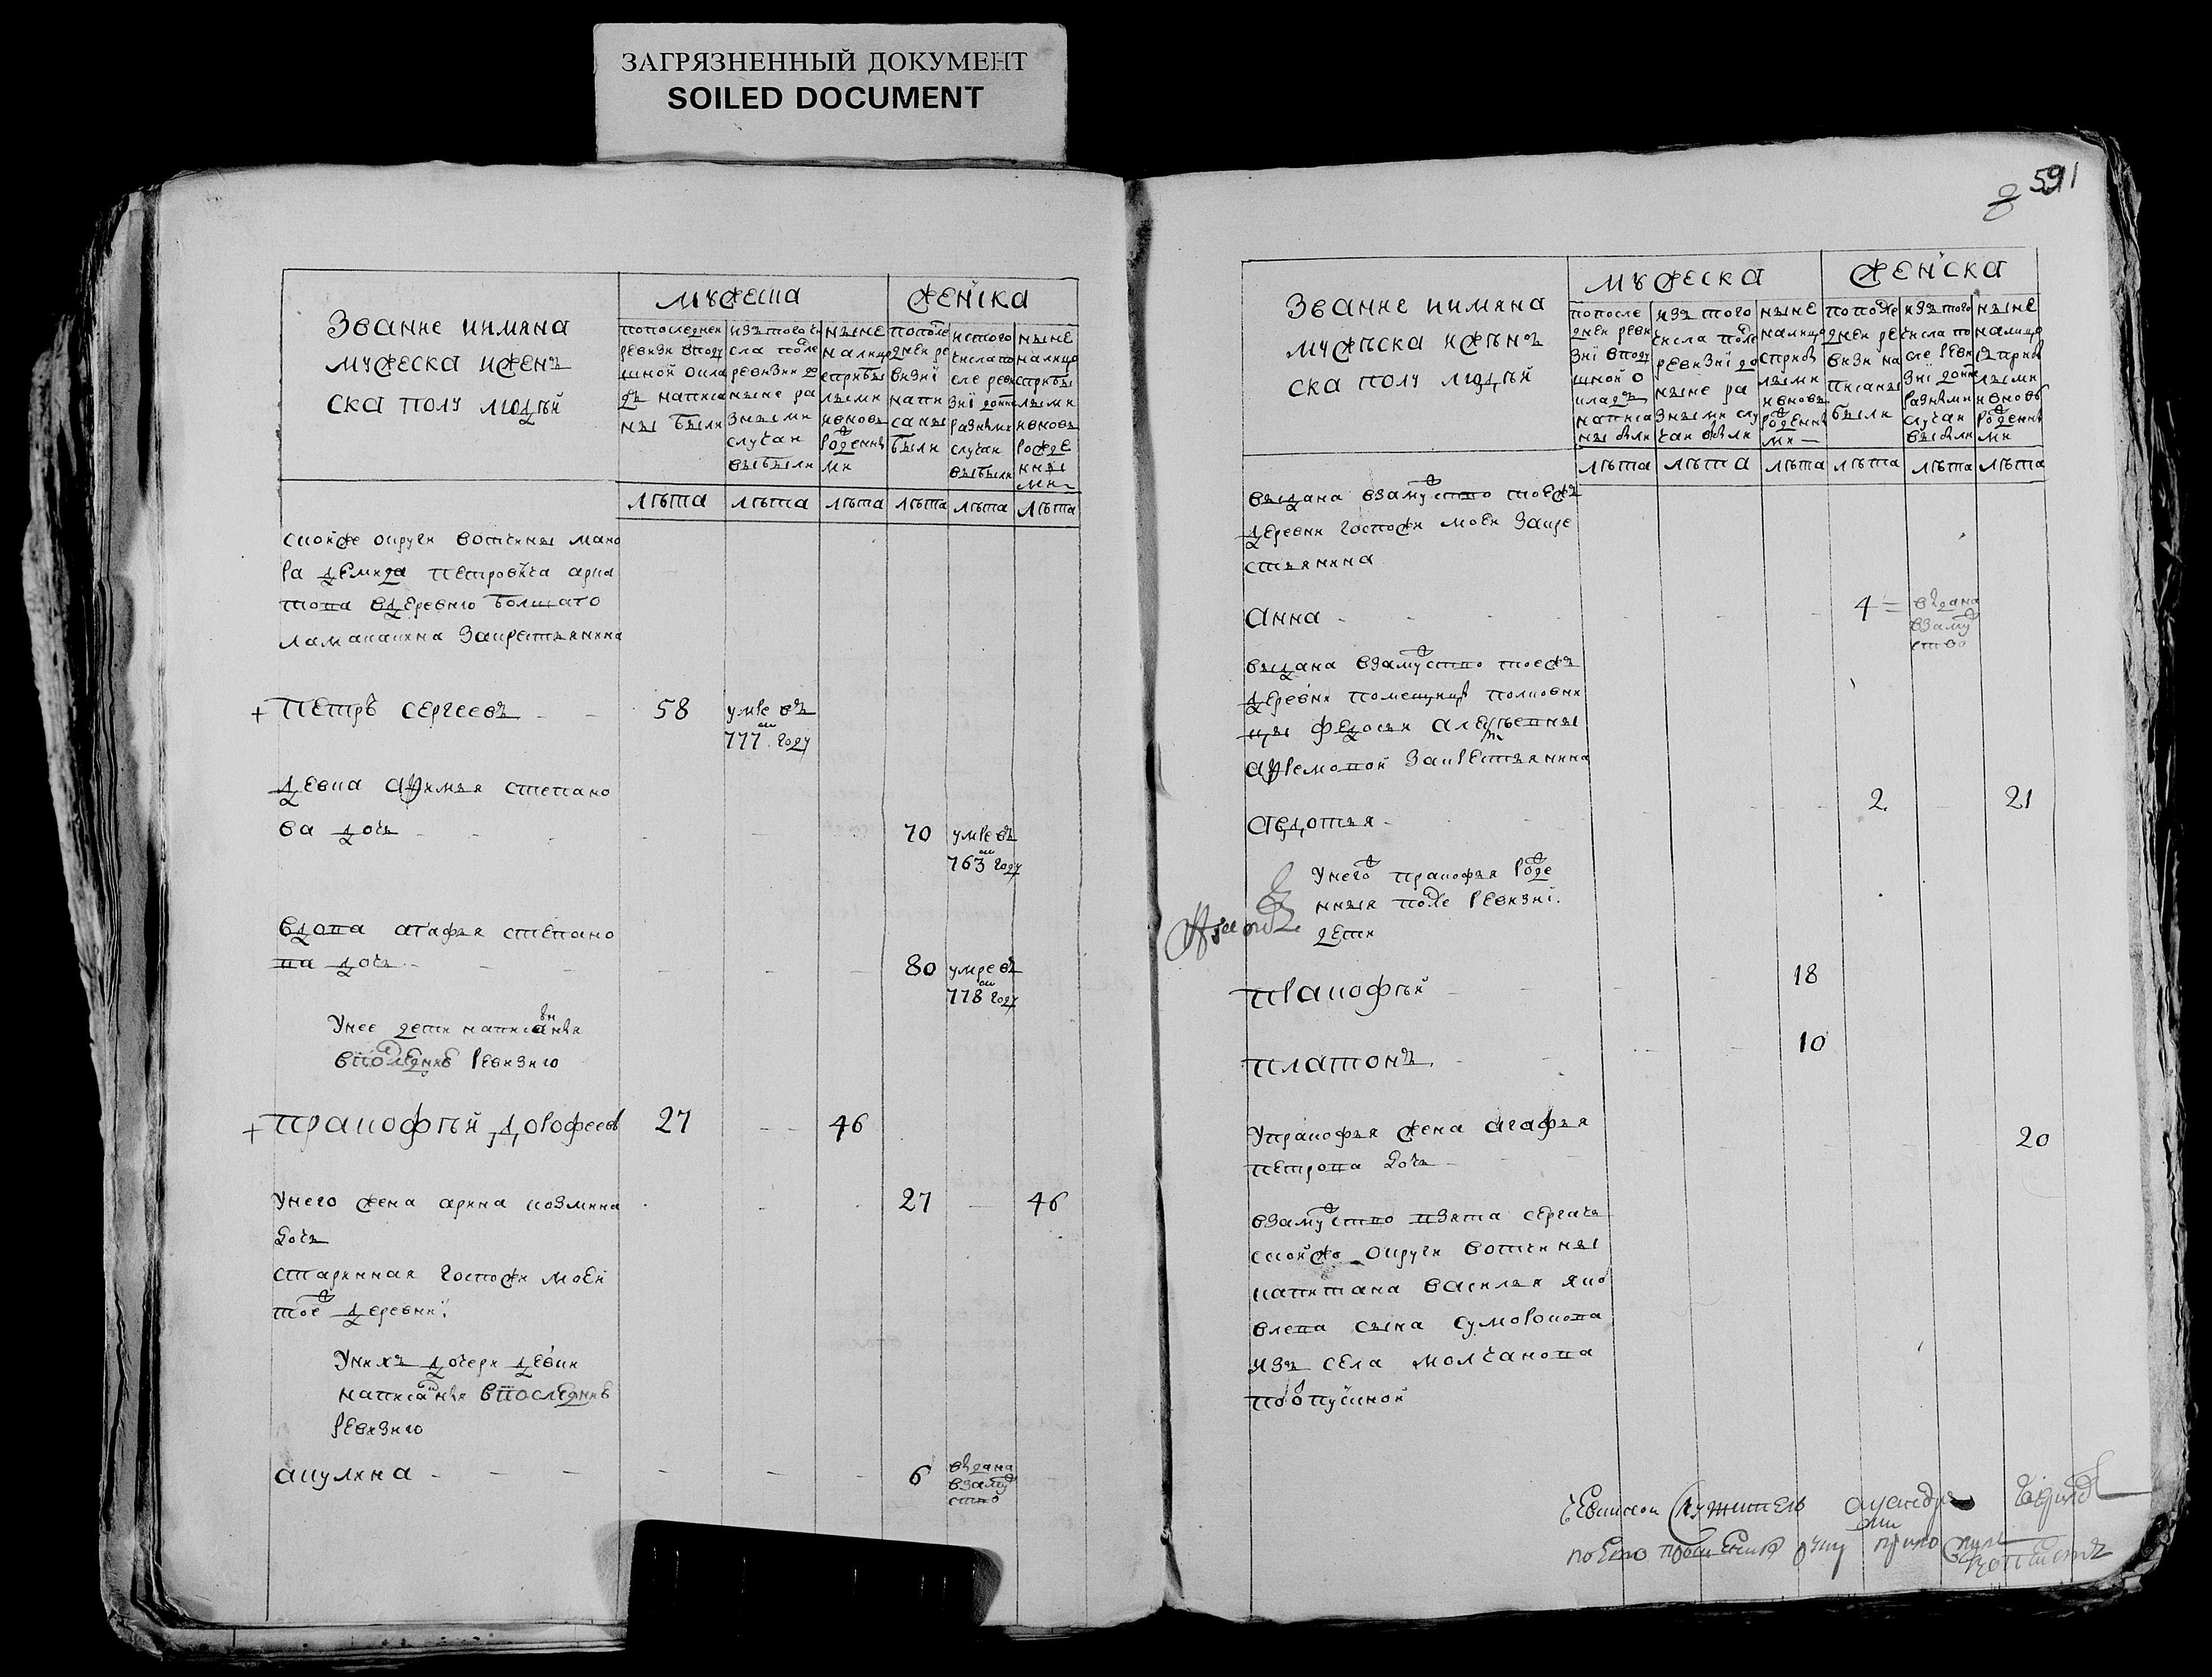 ЗАГРЯЗНЕННЫЙ ДОКУМЕНТ
SOILED DOCUMENT
591
8
Звание иимяна
мужеска ижень
ска полу людѣй
мужеска
женска
попоследнеи
ревизи вподу
шной окла
дъ написа
ны были
изътого чи
сла после
ревизии до
ныне ра
зными
случаи
выбыли
ныне
налицо
сприбы
лыми
ивновь
рожденны
ми
попосле
днеи ре
визиї
напи
саны
были
истого
числа по
сле реви
зиї доныне
разными
случаи
выбыли
ныне
налицо
сприбы
лыми
ивновь
рожде
нны
ми
лѣта лѣта лѣта лѣта лѣта лѣта
скойже округи вотчины маио
ра демида петровича арха
това вдеревню болшаго
закрестьянина
+ Петръ сергеевъ 58 умре въ
777 м году
девка афимья степано
ва дочь 70 умре въ
763 м году
вдова агафья степано
ва дочь 80 умре въ
778 м году
Унее дети написанныя
впоследнюю ревизию
+ Пракофѣй дорофеевъ 27 46
Унего жена арина козмина 27 46
дочь
старинная госпожи моеи
тоеж деревни
Унихъ дочери девки
написанныя впоследнюю
ревизию
акулина 6 выдана
взамуж
ство
Звание иимяна
мужеска иженъ
ска полу людѣй
мужеска
женска
попосле
днеи реви
зиї вподу
шной о
кладъ
написа
ны были
изъ того
числа после
ревизиї до
ныне ра
зными слу
чаи выбыли
ныне
налицо
сприбы
лыми
ивновь
рожденны
ми
попосле
днеи ре
визиї на
писаны
были
изъ того
числа по
сле реви
зиї доныне
разными
случаи
выбыли
ныне
налицо
с прибы
лыми
ивновь
рожденны
ми
лѣта лѣта лѣта лѣта лѣта лѣта
выдана взамужство тоежъ
деревни госпожи моеи закре
стьянина
Анна 4 выдана
взамуж
ство
выдана взамужство тоежъ
деревни помещицы полковни
цы федосьи алексѣевны
закрестьянина
авдотья 2 21
Унегож пракофья рожде
нныя после ревизиї
дети
Пракофѣй 18
платонъ 10
Упракофья жена агафья
петрова дочь 20
взамужство взята сергачь
скойже округи вотчины
капитана василья яко
влева сына сумарокова
изъ села молчанова
поотпускной
служитель
поего прошению руку приложил
копеистъ